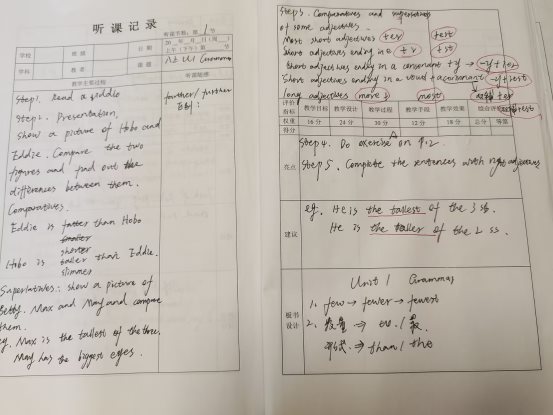 听课记录
听课节数：第 1 节
学校
班级
日期
20 年 月 日（周 ）
上午（下午）第 节
学科
教者
课题
8A U1 Grammar
教学主要过程
听课随感
Step1. Read a riddle
Step2. Presentation.
show a picture of Hobo and
Eddie. Compare the two
figures and find out the
differences between them.
Comparatives.
Eddie is fatter than Hobo
smaller
shorter
Hobo is taller than Eddie.
slimmer
Superlatives: show a picture of
Betty, Max and May and compare
them.
eg. Max is the tallest of the three.
May has the biggest eyes.
farther/further
区别：
Step3. Comparatives and superlatives
of some adjectives.
Most short adjectives +er +est
Short adjectives ending in e +r +st
Short adjectives ending in a consonant +y → -y+ier
Short adjectives ending in a vowel + a consonant
long adjectives more most
评价指标
教学目标
教学设计
教学过程
教学手段
教学效果
综合评价
权重
16分
24分
30分
12分
18分
总分
等第
得分
Step4. Do exercise on P.12
亮点
Step5. Complete the sentences with right adjectives.
建议
eg. He is the tallest of the 3 ss.
He is the taller of the 2 ss.
板书设计
Unit 1 Grammar
1. few → fewer → fewest
2. 数量 →
形式 → than / the